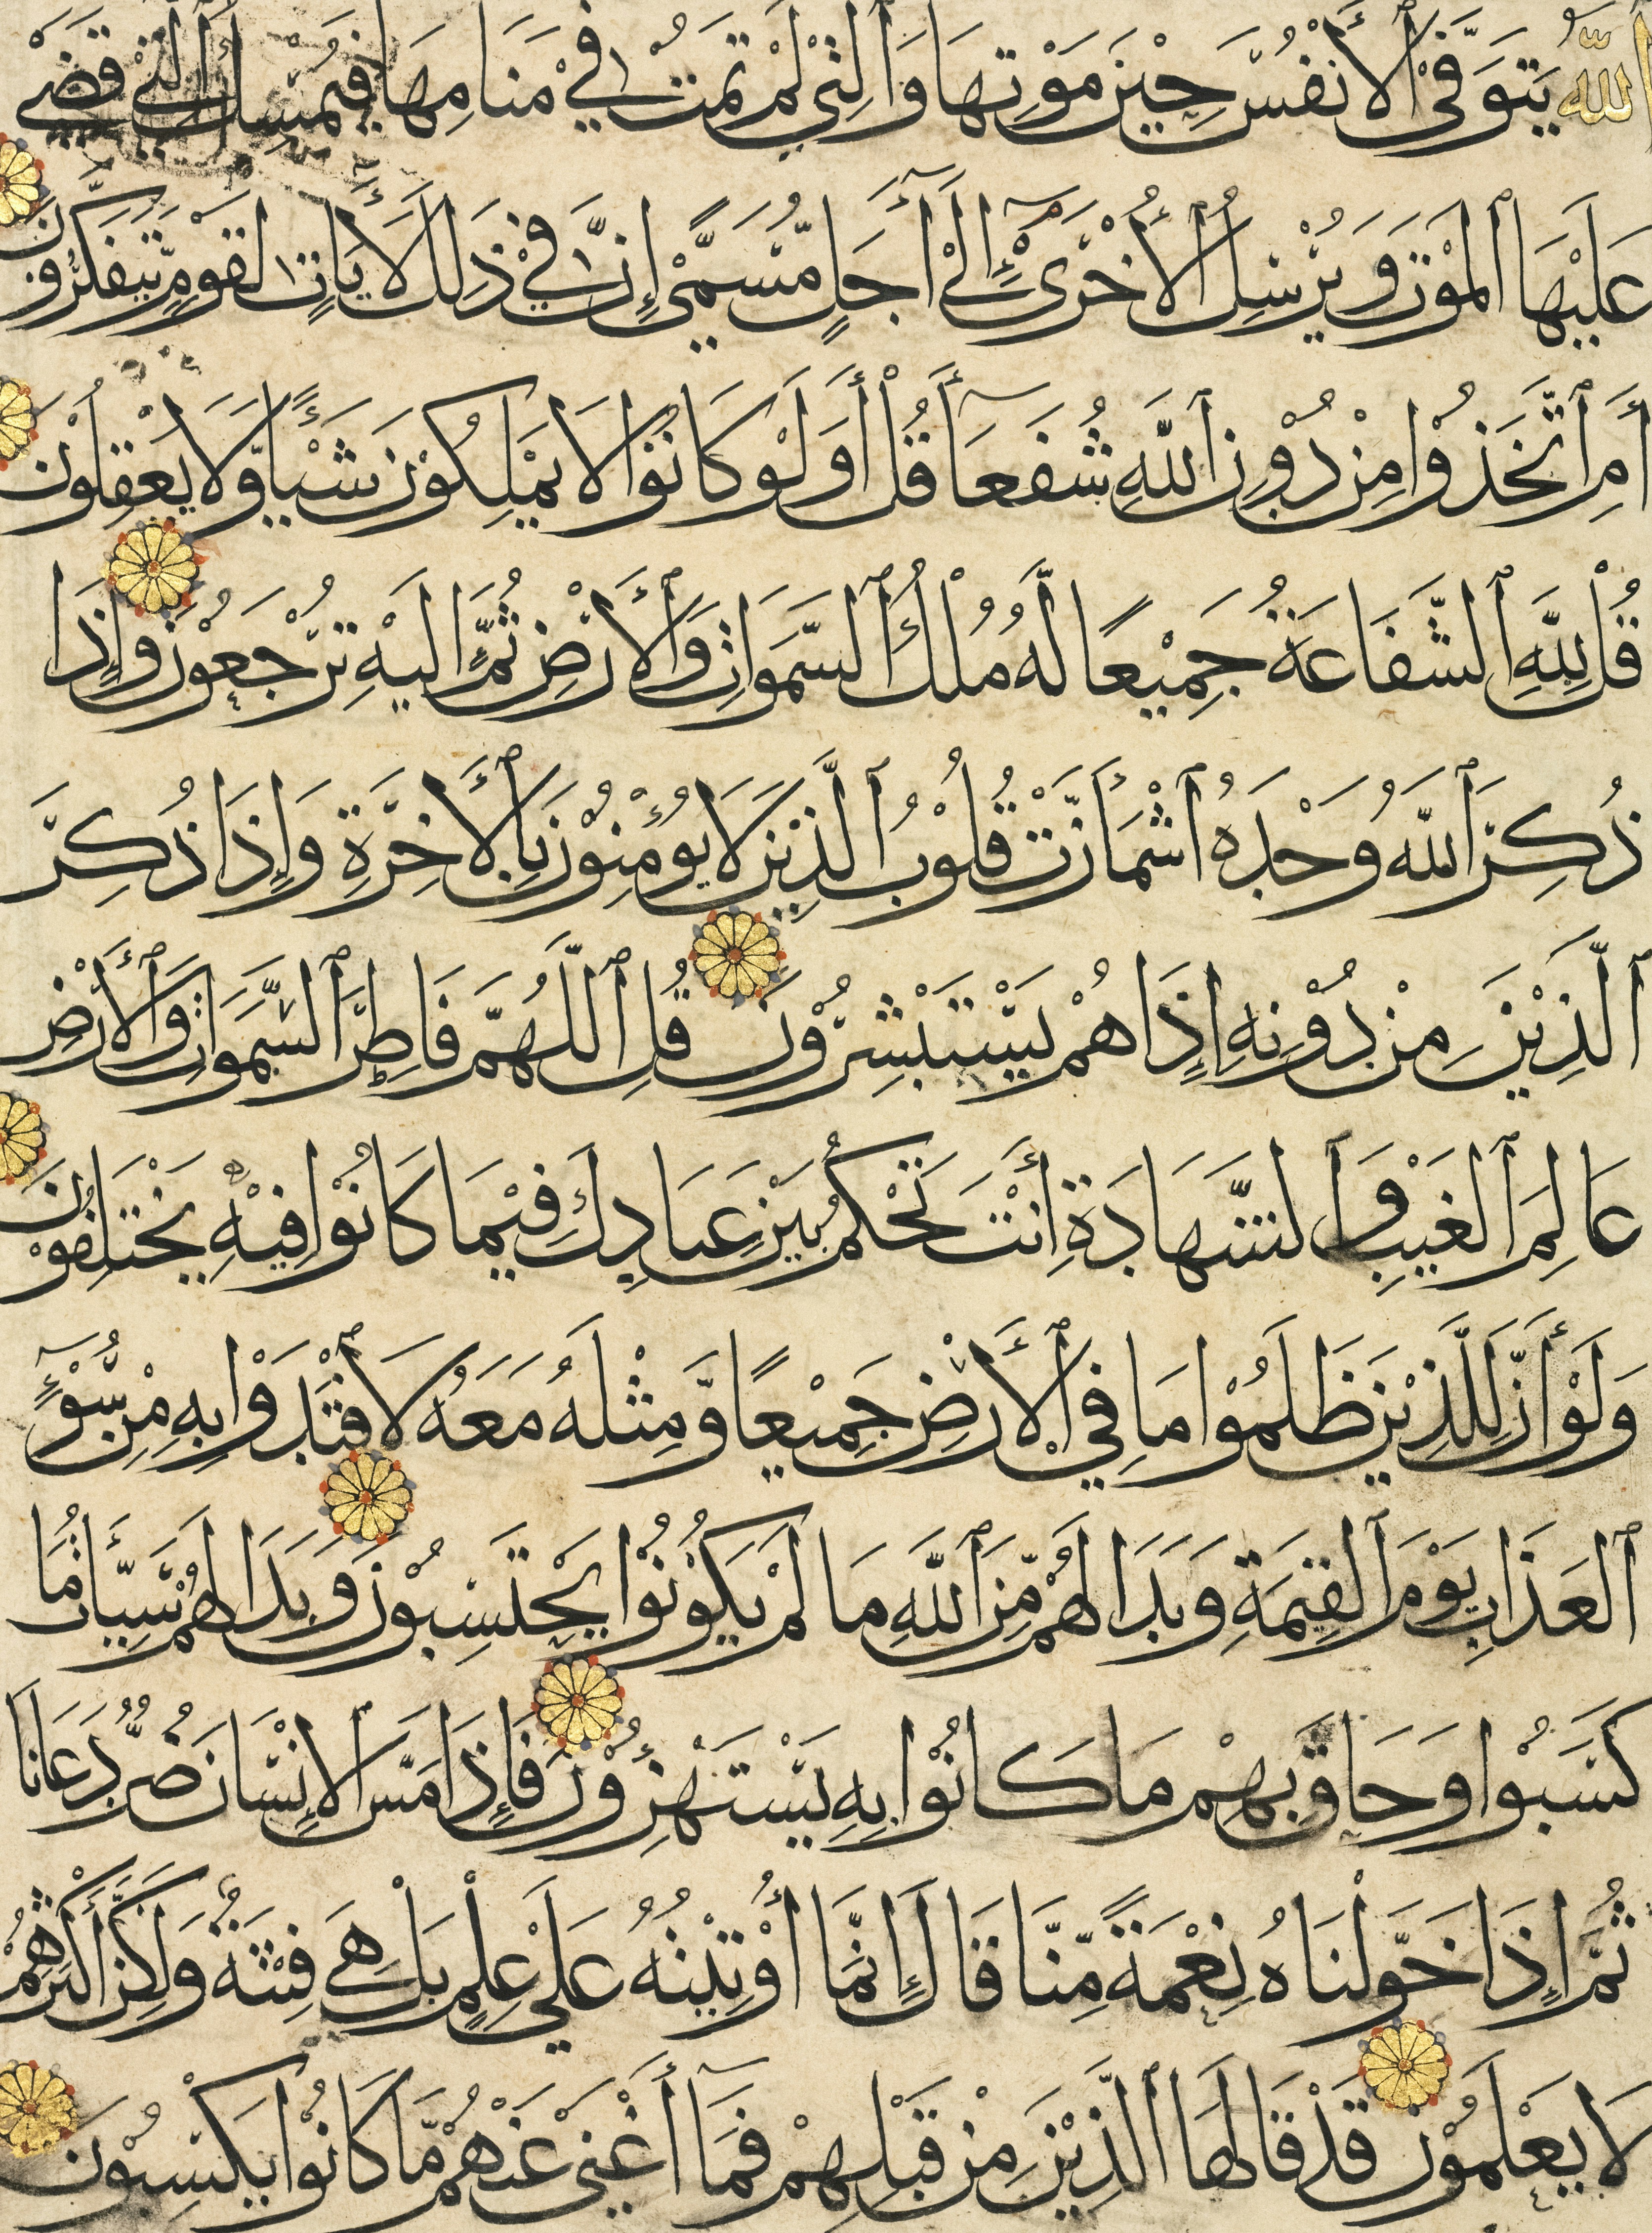 ٱللَّهُ يَتَوَفَّى ٱلْأَنْفُسَ حِيْنَ مَوْتِهَا وَٱلَّتِيْ لَمْ تَمُتْ فِيْ مَنَامِهَا فَيُمْسِكُ ٱلَّتِيْ قَضَىٰ
عَلَيْهَا ٱلْمَوْتَ وَيُرْسِلُ ٱلْأُخْرَىٰٓ إِلَىٰٓ أَجَلٍ مُّسَمًّى إِنَّ فِيْ ذَٰلِكَ لَآيَاتٍ لِّقَوْمٍ يَّتَفَكَّرُوْنَ
أَمِ ٱتَّخَذُوْا مِنْ دُوْنِ ٱللَّهِ شُفَعَآءَ قُلْ أَوَلَوْ كَانُوْا لَا يَمْلِكُوْنَ شَيْئًا وَّلَا يَعْقِلُوْنَ
قُلْ لِلَّهِ ٱلشَّفَاعَةُ جَمِيْعًا لَّهُ مُلْكُ ٱلسَّمَوَاتِ وَٱلْأَرْضِ ثُمَّ إِلَيْهِ تُرْجَعُوْنَ وَإِذَا
ذُكِرَ ٱللَّهُ وَحْدَهُ ٱشْمَأَزَّتْ قُلُوْبُ ٱلَّذِيْنَ لَا يُؤْمِنُوْنَ بِٱلْأَخِرَةِ وَإِذَا ذُكِرَ
ٱلَّذِيْنَ مِنْ دُوْنِهِ إِذَا هُمْ يَسْتَبْشِرُوْنَ قُلِ ٱللَّهُمَّ فَاطِرَ ٱلسَّمَوَاتِ وَٱلْأَرْضِ
عَالِمَ ٱلْغَيْبِ وَٱلشَّهَادَةِ أَنْتَ تَحْكُمُ بَيْنَ عِبَادِكَ فِيْمَا كَانُوْا فِيْهِ يَخْتَلِفُوْنَ
وَلَوْ أَنَّ لِلَّذِيْنَ ظَلَمُوْا مَا فِي ٱلْأَرْضِ جَمِيْعًا وَّمِثْلَهُ مَعَهُ لَٱفْتَدَوْا بِهِ مِنْ سُوْٓءِ
ٱلْعَذَابِ يَوْمَ ٱلْقِيَمَةِ وَبَدَا لَهُمْ مِّنَ ٱللَّهِ مَا لَمْ يَكُوْنُوْا يَحْتَسِبُوْنَ وَبَدَا لَهُمْ سَيِّئَاتُ مَا
كَسَبُوْا وَحَاقَ بِهِمْ مَا كَانُوْا بِهِ يَسْتَهْزِءُوْنَ فَإِذَا مَسَّ ٱلْإِنْسَانَ ضُرٌّ دَعَانَا
ثُمَّ إِذَا خَوَّلْنَاهُ نِعْمَةً مِّنَّا قَالَ إِنَّمَا أُوْتِيْتُهُ عَلَىٰ عِلْمٍ بَلْ هِيَ فِتْنَةٌ وَلَكِنَّ أَكْثَرَهُمْ
لَا يَعْلَمُوْنَ قَدْ قَالَهَا ٱلَّذِيْنَ مِنْ قَبْلِهِمْ فَمَآ أَغْنَىٰ عَنْهُمْ مَّا كَانُوْا يَكْسِبُوْنَ